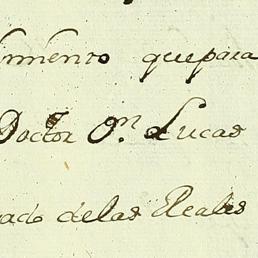 imiento quepara
Doctor Dn. Lucas
ado delas Reales